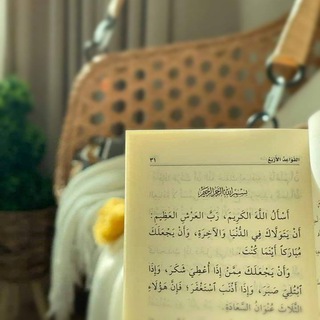 القواعد الأربع ٣١
بسم الله الرحمن الرحيم
أَسْأَلُ اللَّهَ الْكَرِيمَ، رَبَّ الْعَرْشِ الْعَظِيمِ:
أَنْ يَتَوَلَّاكَ فِي الدُّنْيَا وَالآخِرَةِ، وَأَنْ يَجْعَلَكَ
مُبَارَكاً أَيْنَمَا كُنْتَ.
وَأَنْ يَجْعَلَكَ مِمَّنْ إِذَا أُعْطِيَ شَكَرَ، وَإِذَا
ابْتُلِيَ صَبَرَ، وَإِذَا أَذْنَبَ اسْتَغْفَرَ؛ فَإِنَّ هَؤُلَاءِ
الثَّلَاثَ عُنْوَانُ السَّعَادَةِ.